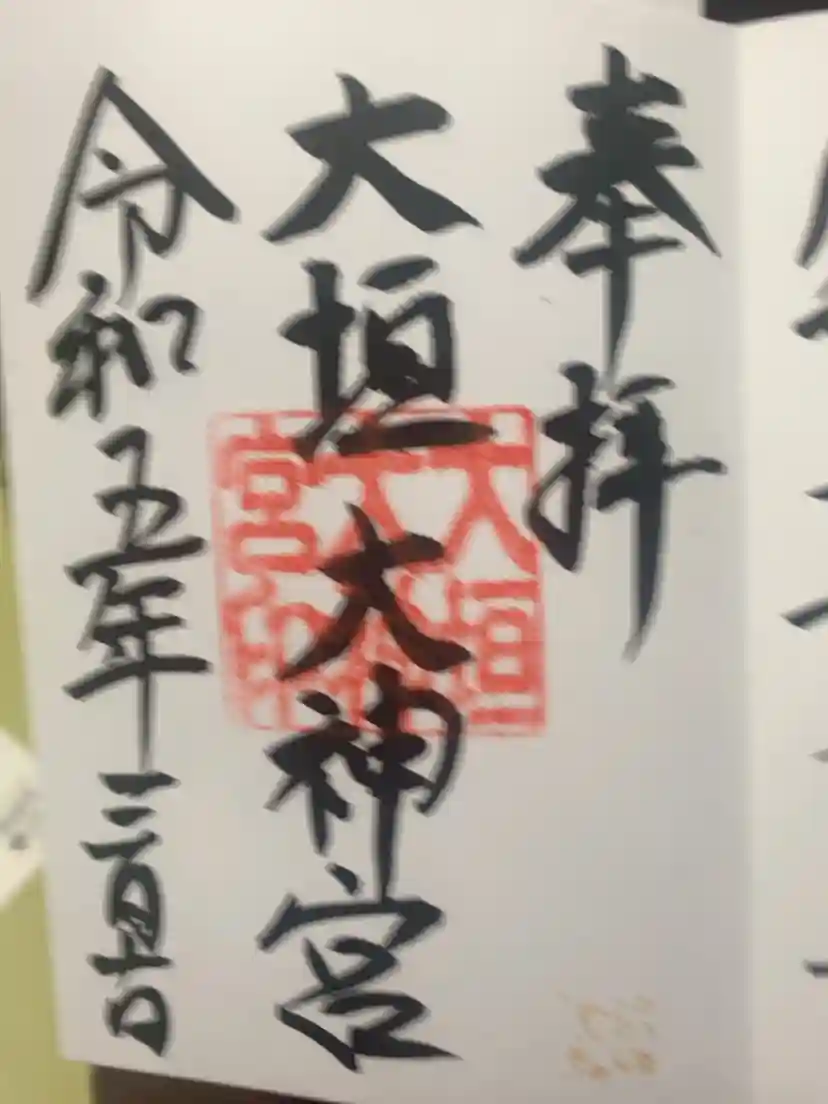 奉拝
大垣大神宮
令和五年三月十日
大垣
大神
宮印